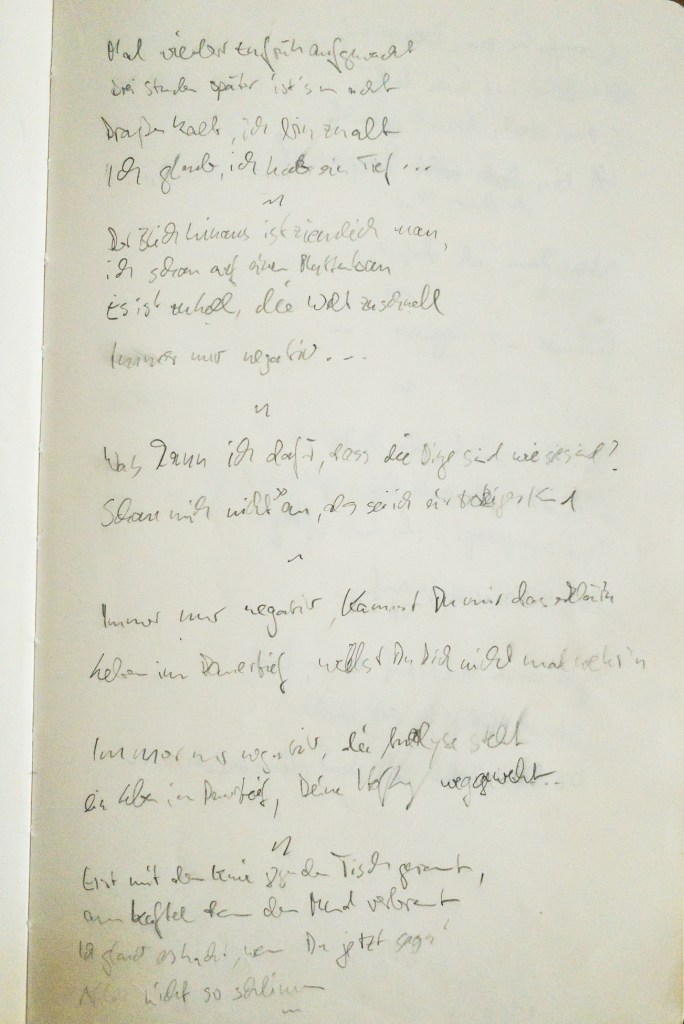 Mal wieder zu früh aufgewacht
drei Stunden später ist's nacht
Draußen kalt, ich bin zu alt
Ich glaub, ich hab ein Tief ...
Der Blick hinaus ist ziemlich mau,
ich schau auf einen Plattenbau
Es ist zu hell, die Welt zu schnell
Immer nur negativ ...
Was kann ich dafür, dass die Dinge sind wie sie sind?
Schau mich nicht so an, als sei ich ein Kind
Immer nur negativ, Kannst Du mir das erklär'n
Leben im Dauertief willst Du Dich nicht mal wehr'n
Immer nur negativ, die Analyse steht
ein Leben im Dauertief, Deine Hoffnung weggeweht..
Erst mit dem Knie gegen den Tisch gerannt,
am Kaffee dann den Mund verbrannt
Ich glaub es hackt, wenn Du jetzt sagst
nicht so schlimm